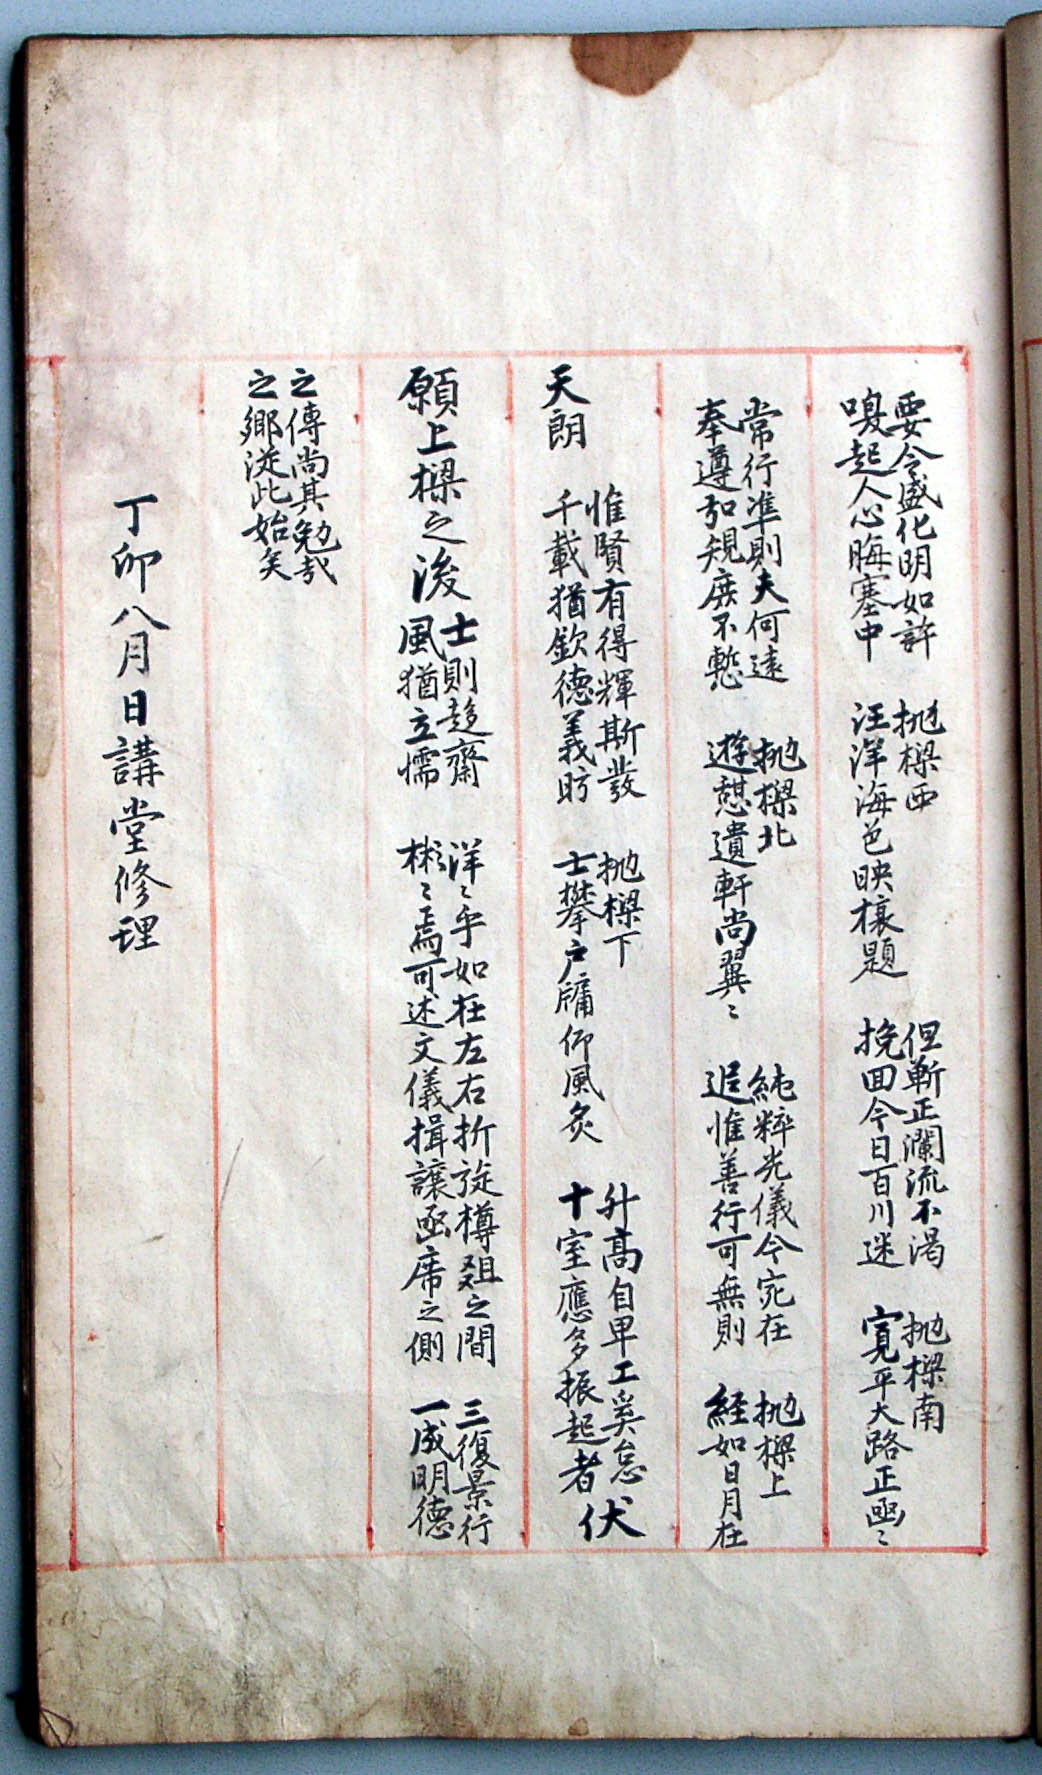 要令盛化明如許
嗅起人心晦塞中
抛樑西
汪洋海色映榱題
但斬正瀾流不渴
挽回今日百川迷
抛樑南
寬平大路正凾〻
常行準則夫何遠
奉遵弘規庶不慙
抛樑北
遊憇遺軒尚翼〻
純粹光儀今宛在
遐惟善行可無則
抛樑上
経如日月在
天朗
惟賢有得輝斯發
千載猶欽德義昉
抛樑下
士攀戶牖仰風炙
升高自卑工奚怠
十室應多振起者
伏
願上樑之後
士則趍齋
風猶立懦
洋〻乎如在左右折旋樽俎之間
彬〻焉可述文儀揖讓凾席之側
三復景行
一成明德
之傳尚其勉哉
之鄉從此始矣
丁卯八月日講堂修理